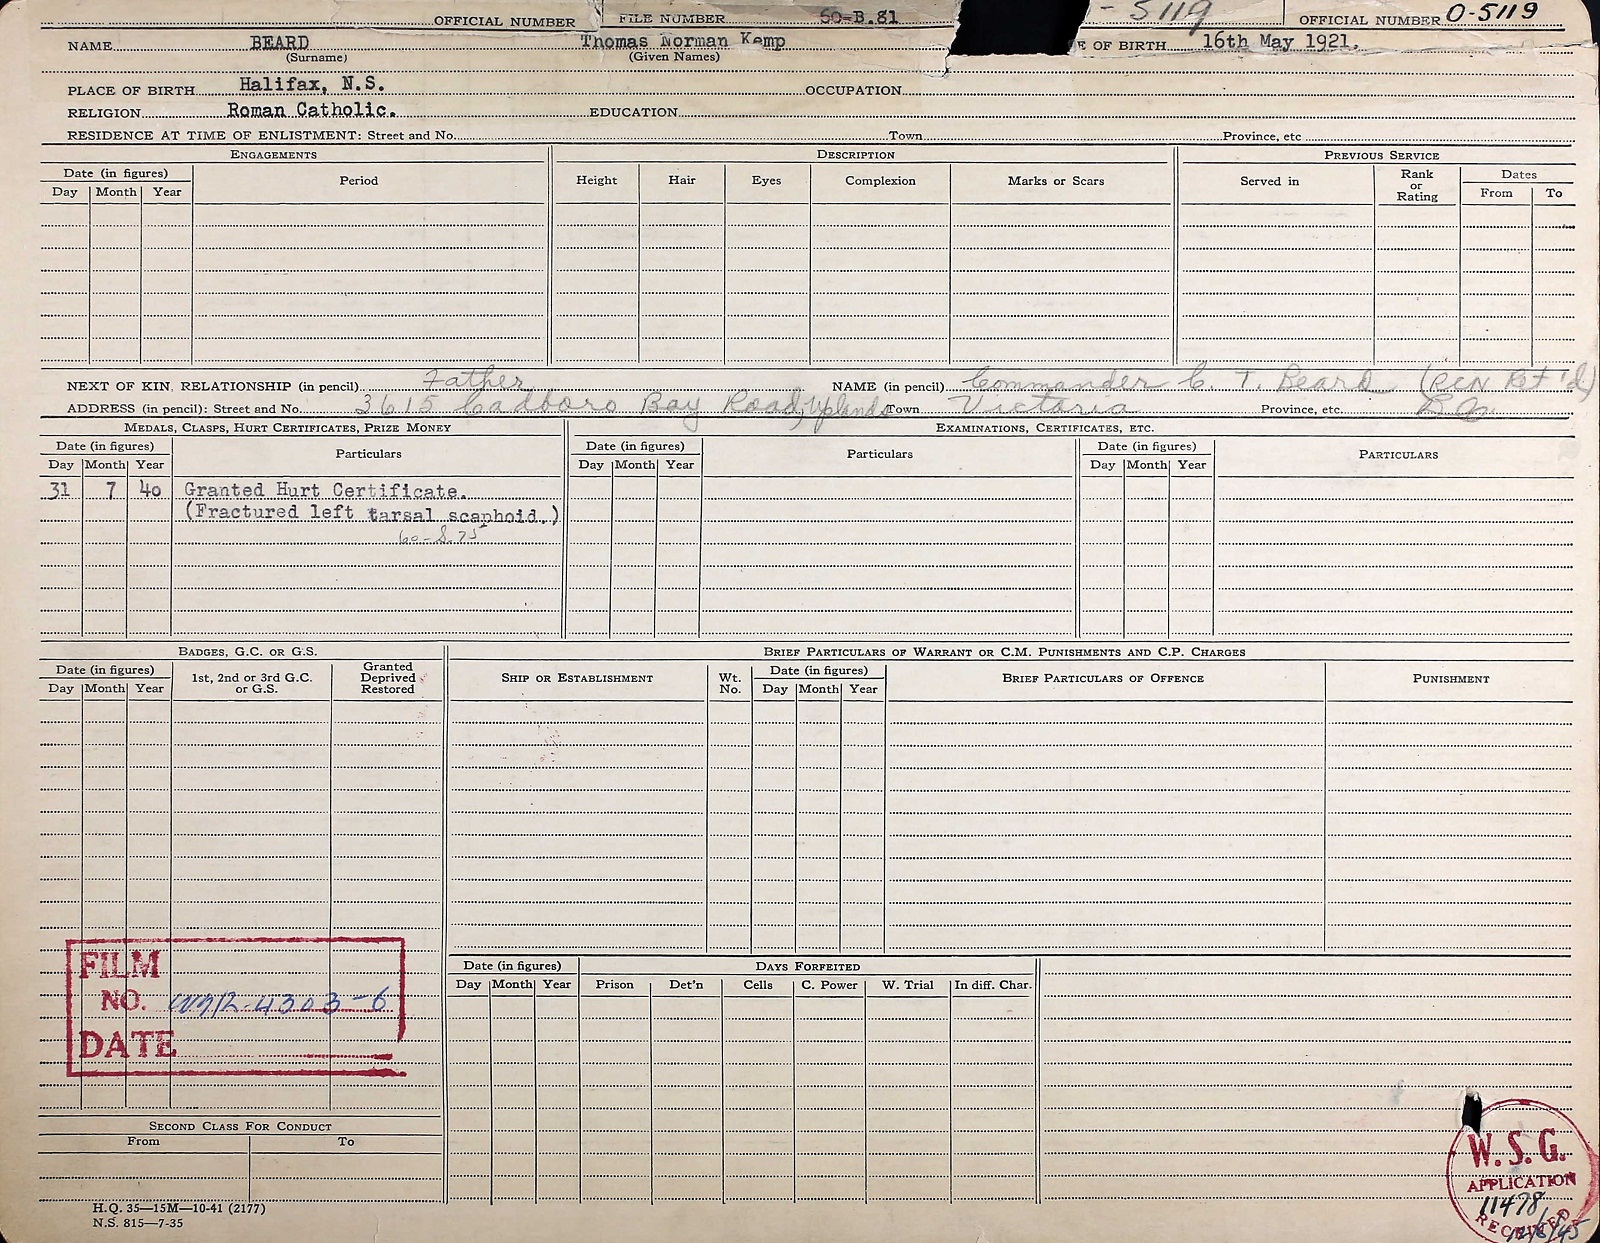 OFFICIAL NUMBER FILE NUMBER 60-B.81 - 5119 OFFICIAL NUMBER O-5119
NAME BEARD Thomas Norman Kemp E OF BIRTH 16th May 1921.
(Surname) (Given Names)
PLACE OF BIRTH Halifax, N.S. OCCUPATION
RELIGION Roman Catholic. EDUCATION
RESIDENCE AT TIME OF ENLISTMENT: Street and No. Town Province, etc
ENGAGEMENTS DESCRIPTION PREVIOUS SERVICE
Date (in figures) Period Height Hair Eyes Complexion Marks or Scars Served in Rank or Rating Dates
Day Month Year From To
NEXT OF KIN, RELATIONSHIP (in pencil) Father NAME (in pencil) Commander C. T. Beard (RCN Ret'd)
ADDRESS (in pencil): Street and No. 3615 Cadboro Bay Road, Uplands Town Victoria Province, etc. B.C.
MEDALS, CLASPS, HURT CERTIFICATES, PRIZE MONEY EXAMINATIONS, CERTIFICATES, ETC.
Date (in figures) Particulars Date (in figures) Particulars Date (in figures) PARTICULARS
Day Month Year Day Month Year Day Month Year
31 7 40 Granted Hurt Certificate.
(Fractured left tarsal scaphoid.)
BADGES, G.C. OR G.S. BRIEF PARTICULARS OF WARRANT OR C.M. PUNISHMENTS AND C.P. CHARGES
Date (in figures) 1st, 2nd or 3rd G.C. or G.S. Granted Deprived Restored SHIP OR ESTABLISHMENT Wt. No. Date (in figures) BRIEF PARTICULARS OF OFFENCE PUNISHMENT
Day Month Year Day Month Year
FILM
NO. WSR-4303-6
DATE
Date (in figures) DAYS FORFEITED
Day Month Year Prison Det'n Cells C. Power W. Trial In diff. Char.
SECOND CLASS FOR CONDUCT
From To
W. S. G.
APPLICATION
11478
RECEIVED
H.Q. 35—15M—10-41 (2177)
N.S. 815—7-35